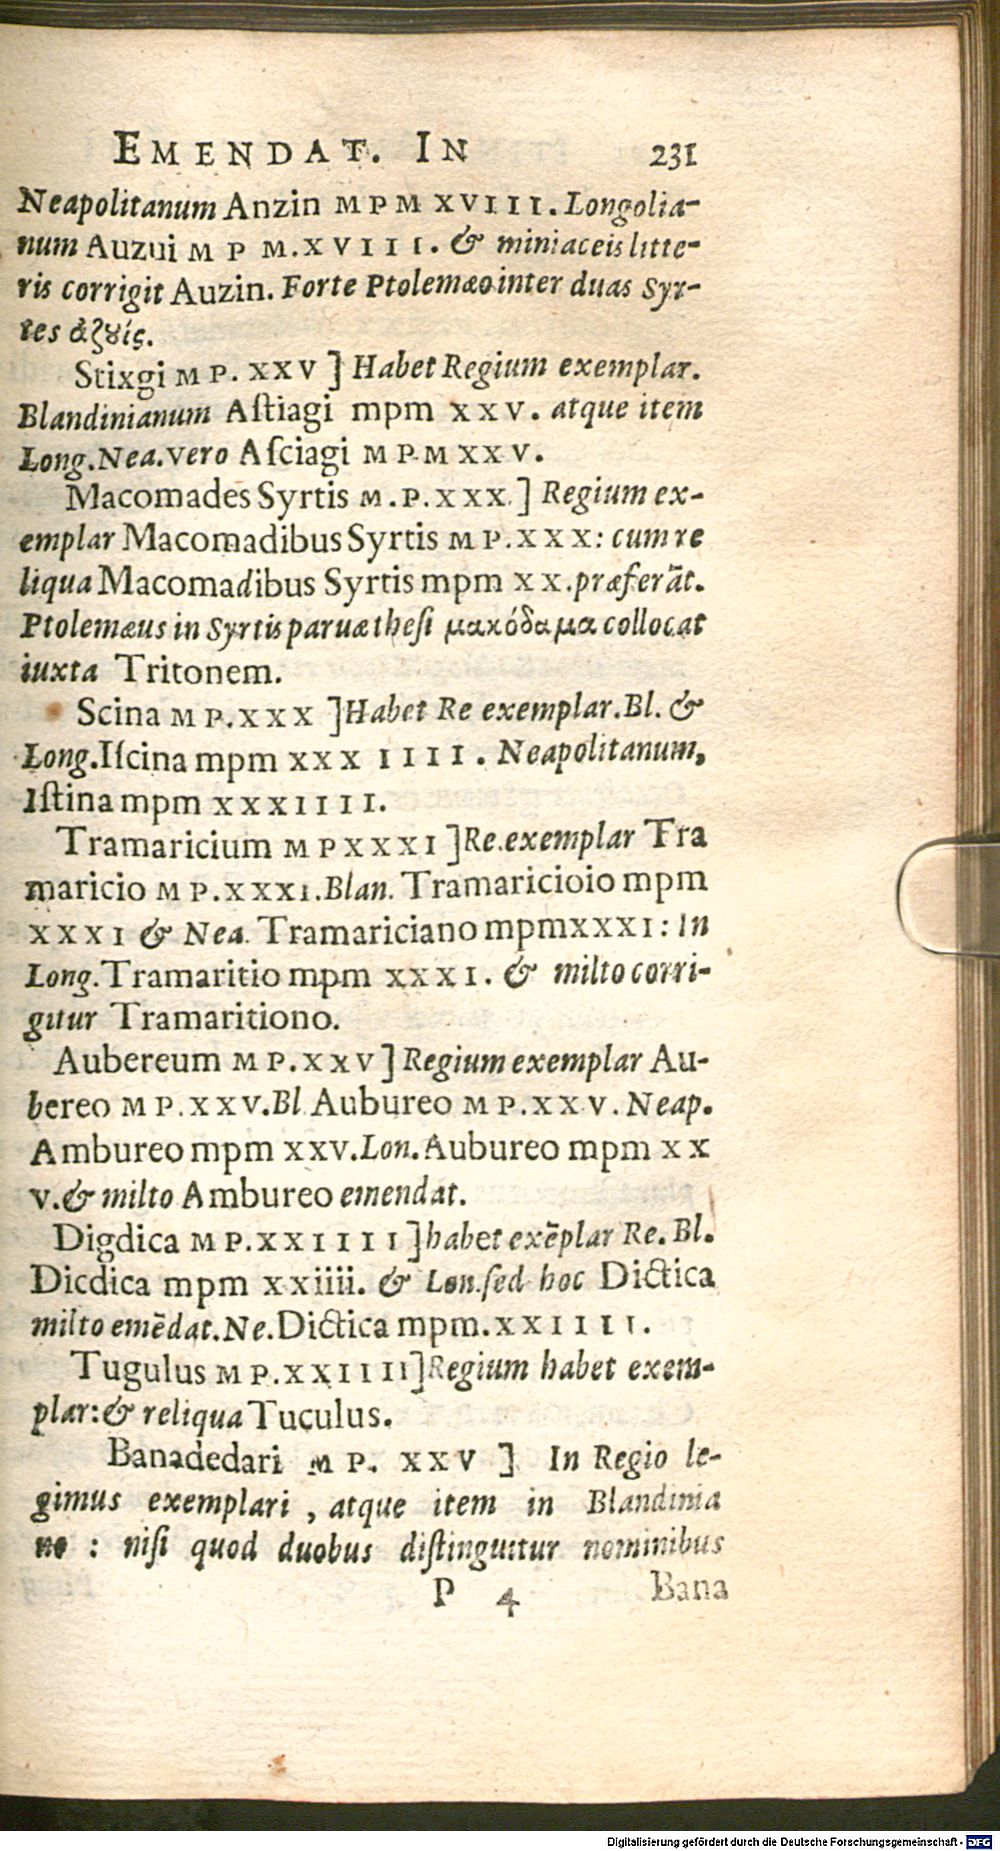 EMENDAT. IN 231
Neapolitanum Anzin MPM XVIII. Longolia-
num Auzui M P M.XVIII. & miniaceis litte-
ris corrigit Auzin. Forte Ptolemæo inter duas Syr-
tes ἀζȣίς.
Stixgi MP. XXV] Habet Regium exemplar.
Blandinianum Aſtiagi mpm XXV. atque item
Long. Nea. vero Aſciagi MPM XXV.
Macomades Syrtis M.P.XXX.] Regium ex-
emplar Macomadibus Syrtis MP.XXX: cum re
liqua Macomadibus Syrtis mpm XX. præferāt.
Ptolemæus in Syrtis paruæ theſi μακόδαμα collocat
iuxta Tritonem.
Scina MP.XXX ]Habet Re exemplar. Bl. &
Long. Iſcina mpm XXXIIII. Neapolitanum,
Iſtina mpm XXXIIII.
Tramaricium MPXXXI ]Re. exemplar Tra
maricio MP.XXXI. Blan. Tramaricioio mpm
XXXI & Nea. Tramariciano mpmXXXI: In
Long. Tramaritio mpm XXXI. & milto corri-
gitur Tramaritiono.
Aubereum MP.XXV] Regium exemplar Au-
bereo MP.XXV. Bl Aubureo MP.XXV. Neap.
Ambureo mpm XXV. Lon. Aubureo mpm XX
V. & milto Ambureo emendat.
Digdica MP.XXIIII ]habet exēplar Re. Bl.
Dicdica mpm xxiiii. & Lon. ſed hoc Dictica
milto emēdat. Ne. Dictica mpm. XXIIII.
Tugulus MP.XXIIII]Regium habet exem-
plar: & reliqua Tuculus.
Banadedari MP. XXV ] In Regio le-
gimus exemplari, atque item in Blandinia
no : niſi quod duobus diſtinguitur nominibus
P 4 Bana
Digitalisierung gefördert durch die Deutsche Forschungsgemeinschaft - DFG